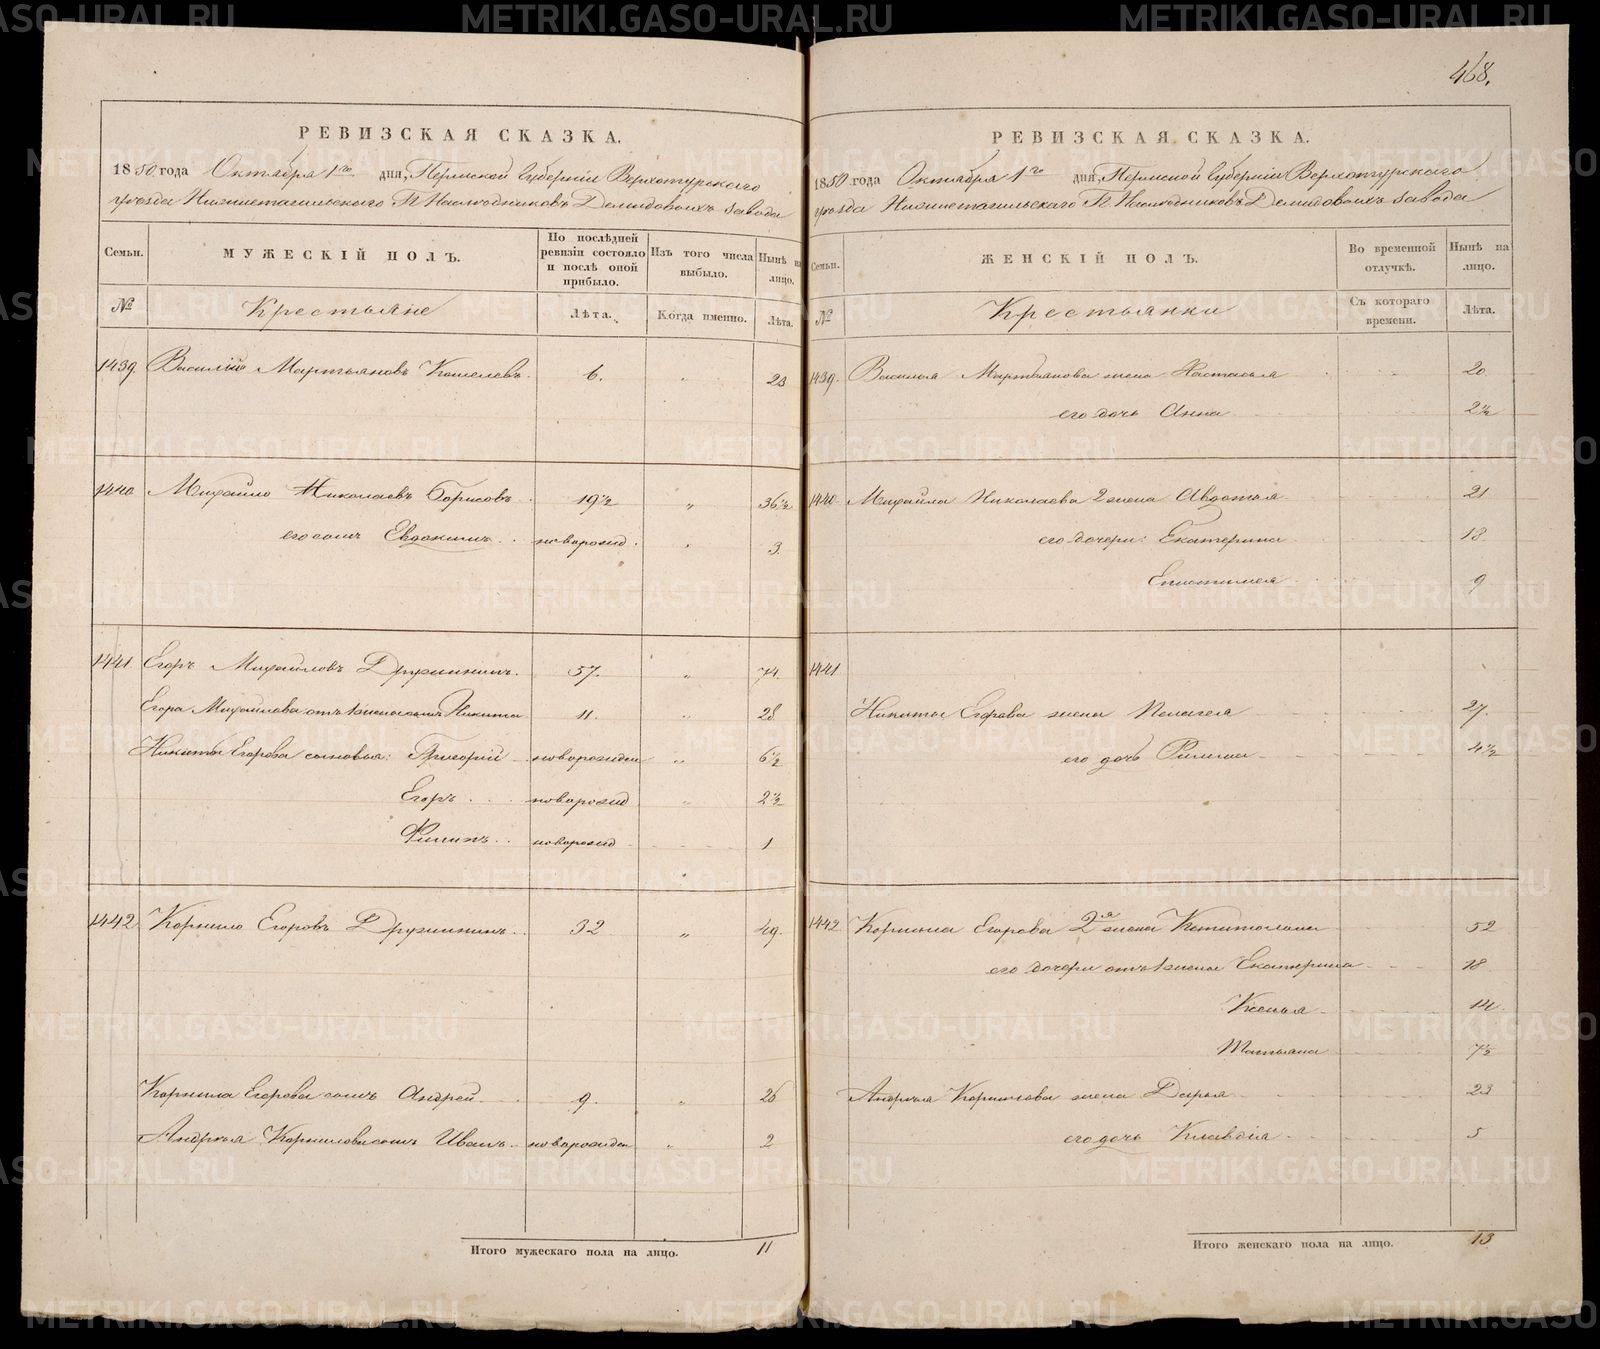 468.
РЕВИЗСКАЯ СКАЗКА.
1850 года Октября 1го дня, Пермской Губерніи Верхотурскаго
уѣзда Нижнетагильскаго Г. Наслѣдниковъ Демидовыхъ завода
Семьи. МУЖЕСКІЙ ПОЛЪ. По послѣдней ревизіи состояло и послѣ оной прибыло. Изъ того числа выбыло. Нынѣ на лицо.
№ Крестьяне Лѣта. Когда именно. Лѣта.
1439 Василій Мартьяновъ Кошелевъ 6. „ 23
1440 Михайло Николаевъ Борисовъ 19½ „ 36½
его сынъ Евдокимъ новорожд. „ 3
1441 Егоръ Михайловъ Дружининъ. 57. „ 74.
Егора Михайлова отъ 1 жены сынъ Никита 11. „ 28
Никиты Егорова сыновья: Григорій новорожден „ 6½
Егоръ новорожд „ 2½
Филипъ новорожд 1
1442 Корнило Егоровъ Дружининъ 32 „ 49.
Корнила Егорова сынъ Андрей 9. „ 26
Андрея Корнилова сынъ Иванъ новорожден „ 2
Итого мужескаго пола на лицо. 11
РЕВИЗСКАЯ СКАЗКА.
1850 года Октября 1го дня, Пермской Губерніи Верхотурскаго
уѣзда Нижнетагильскаго Г. Наслѣдниковъ Демидовыхъ завода
Семьи. ЖЕНСКІЙ ПОЛЪ. Во временной отлучкѣ. Нынѣ на лицо.
№ Крестьянки Съ котораго времени. Лѣта.
1439. Василья Мартьянова жена Настасья 20
его дочь Анна 2½
1440 Михайла Николаева 2 жена Авдотья 21
его дочери: Екатерина 13
Епистимея 9
1441
Никиты Егорова жена Пелагея 27.
его дочь 4½
1442 Корнила Егорова 2я жена Капитолина 52
его дочери отъ 1 жены Екатерина 18
Ксенья 14
Татьяна 7½
Андрея Корнилова жена Дарья 23
его дочь Клавдія 5
Итого женскаго пола на лицо. 13
METRIKI.GASO-URAL.RU